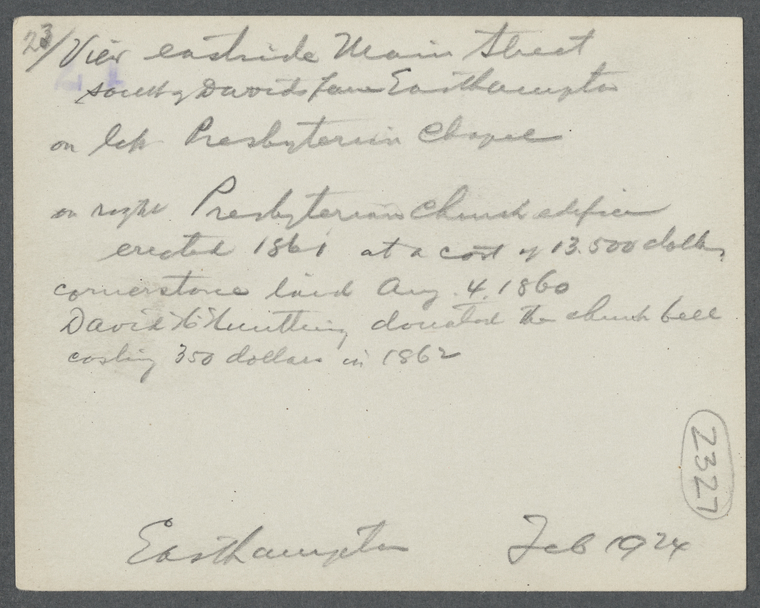 23/ View eastside Main Street
south of Davids Lane Easthampton
on left Presbyterian Chapel
on right Presbyterian Church edifice
erected 1861 at a cost of 13.500 dollars
cornerstone laid Aug. 4. 1860
David H Huntting donated the church bell
costing 350 dollars in 1862
2327
Easthampton Feb 1924